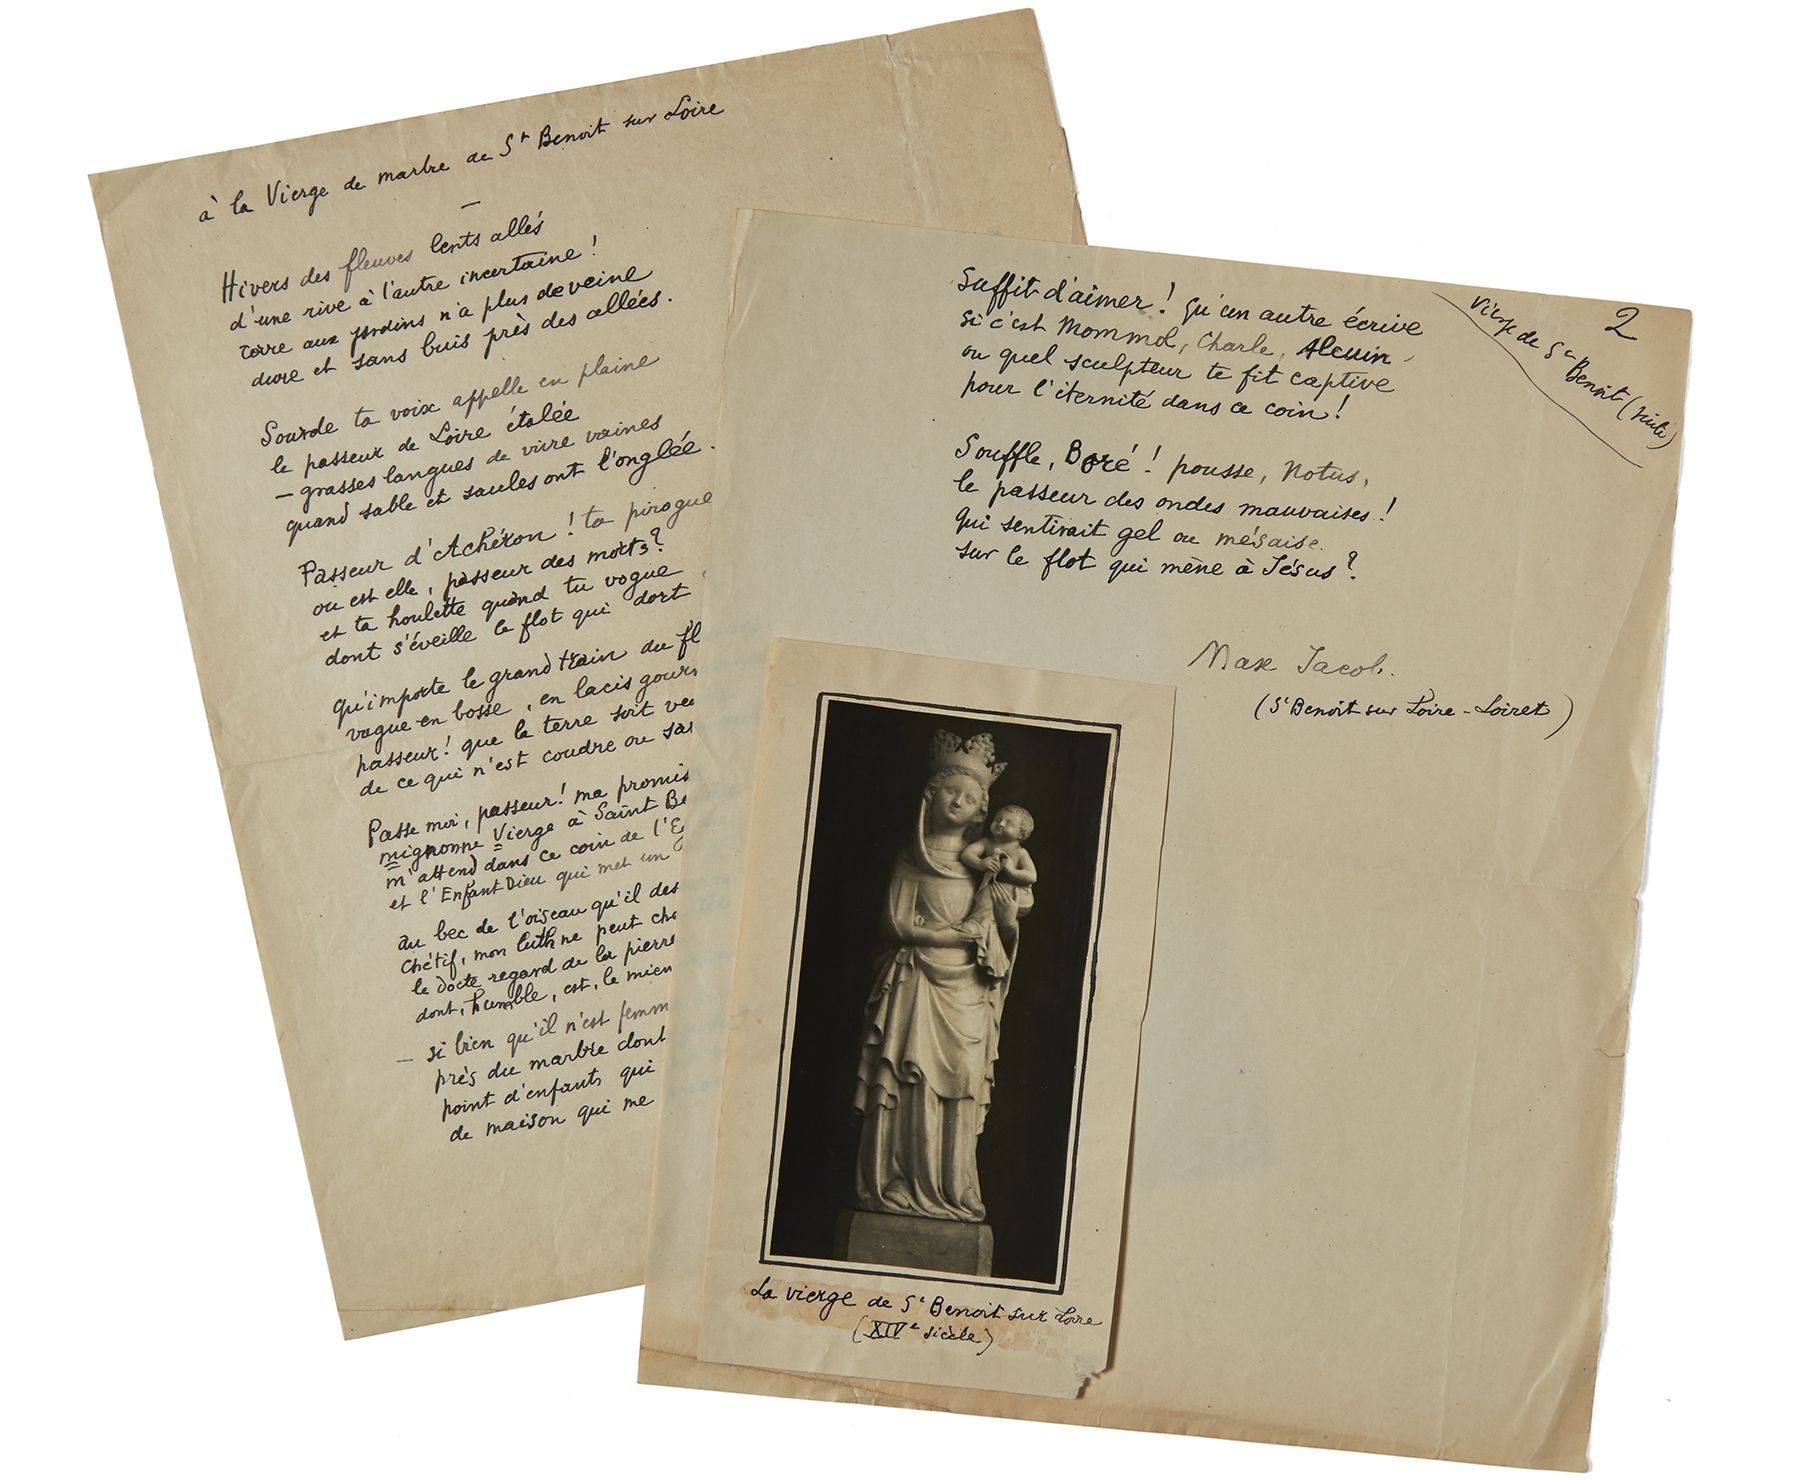 à la Vierge de marbre de St Benoit sur Loire
—
Hivers des fleuves lents allés
d'une rive à l'autre incertaine !
terre aux jardins n'a plus de veine
dure et sans buis près des allées.
Sourde ta voix appelle en plaine
le passeur de Loire étalée
— grasses langues de vivre vaines
quand sable et saules ont l'onglée.
Passeur d'Achéron ! ta pirogue
ou est elle, passeur des morts ?
et ta houlette quand tu vogue
dont s'éveille le flot qui dort
Qu'importe le grand train du fl
vague en bosse, en lacis gour
passeur ! que la terre soit
de ce qui n'est coudre ou
Passe moi, passeur ! ma promis
mignonne Vierge à Saint Be
m'attend dans ce coin de l'
et l'Enfant Dieu qui met un
au bec de l'oiseau qu'il des
Chétif, mon luth ne peut
le docte regard de la pierre
dont, humble, est, le mien
— si bien qu'il n'est femm
près du marbre dont
point d'enfants qui
de maison qui me
2
Vierge de St Benoit (suite)
Suffit d'aimer ! Qu'un autre écrive
si c'est Mommol, Charle, Alcuin
ou quel sculpteur te fit captive
pour l'éternité dans ce coin !
Souffle, Boré ! pousse, Notus,
le passeur des ondes mauvaises !
qui sentirait gel ou mésaise
sur le flot qui mène à Jésus ?
Max Jacob.
(St Benoit sur Loire - Loiret)
La vierge de St Benoit sur Loire
(XIVe siècle)